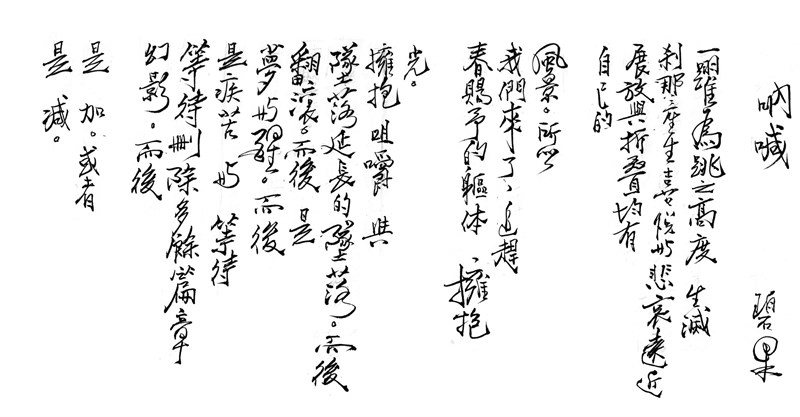 吶喊
碧果
一躍為跳之高度 生滅
剎那產生喜悅與悲哀遠近
展放與折疊皆均有
自己的
風景。所以
我們來了、追趕
春賜予的軀体、擁抱
光。
擁抱 咀嚼 與
墜落延長的墜落。而後
翻滾。而後 是
夢與醒。而後
是疾苦與 等待
等待刪除多餘篇章
幻影。而後
是 加。或者
是 減。